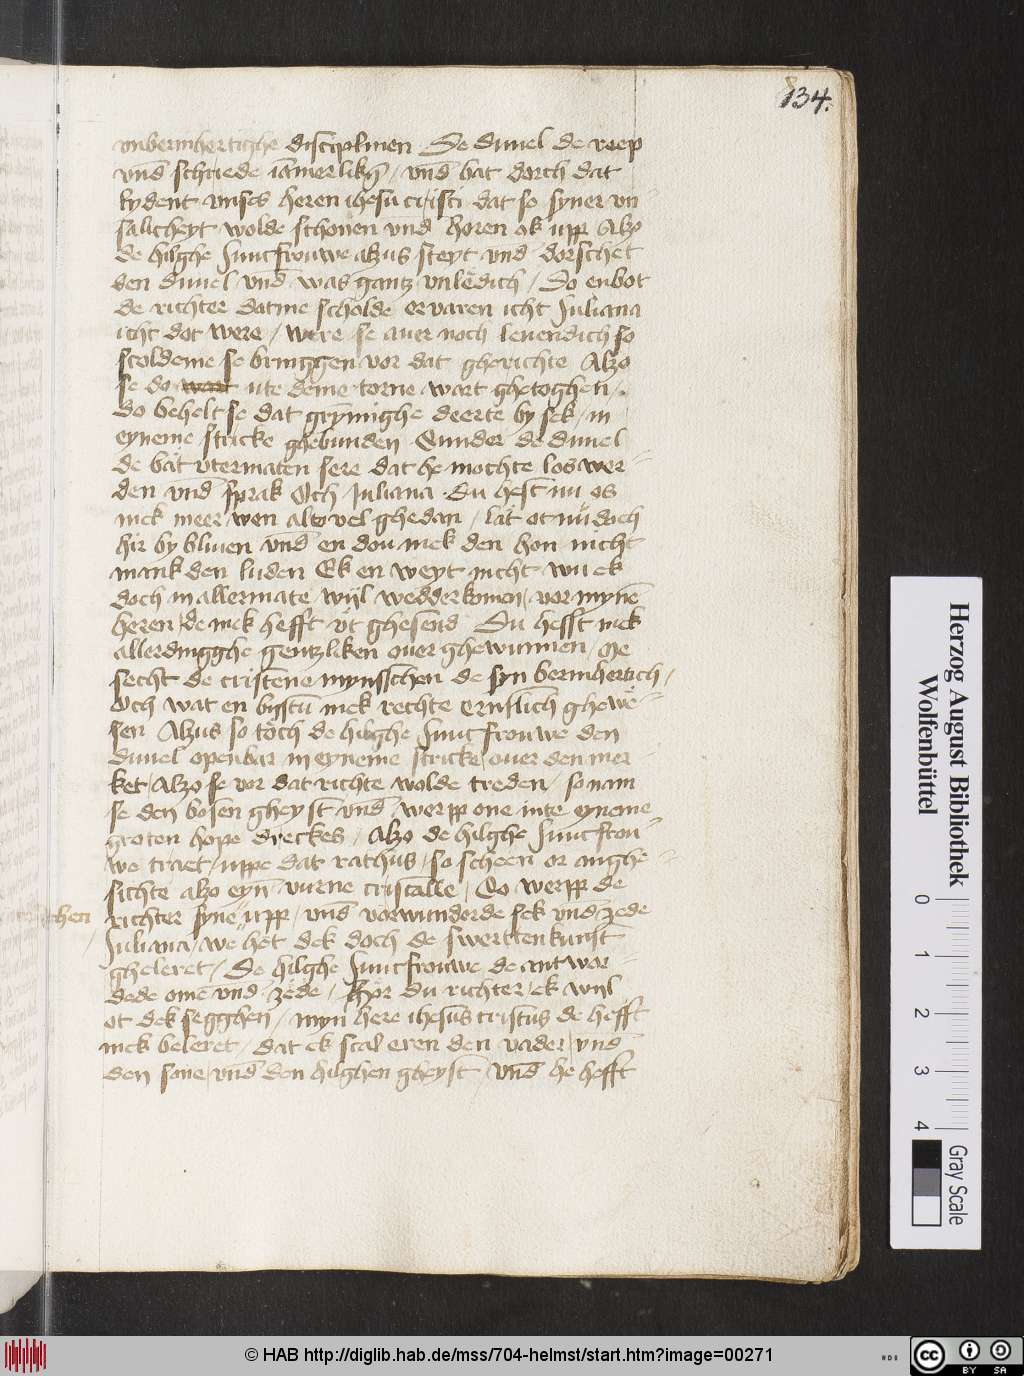 134.
vnbermhertighe disciplinen De duuel de reep
vnd schriede iamerliken / vnd bat dorch dat
lydent vnses heren ihesu cristi dat so syner vn
salicheyt wolde schonen vnd horen ok upp Alzo
de hilghe Juncfrouwe alzus steyt vnd dorschet
den duuel vnd was gantz vnledich / Do enbot
de richter datme scholde ervaren icht Juliana
icht dot were / were se auer noch leuendich so
scoldeme se bringgen vor dat gherichte Alzo
se do wart ute deme torne wart ghetoghen /
do behelt se dat grymighe deerte by sek / in
eyneme stricke ghebunden Sunder de duuel
de bat vtermaten sere dat he mochte los wer
den vnd sprak Och Juliana du hest nu os
mek meer wen alto vel ghedan / lat ot nu doch
hir by bliuen vnd en dou mek den hon nicht
mank den luden Ek en weyt nicht wu ek
doch in allermate wijl wedderkomen / vor myne
heren / de mek hefft vt ghesend Du hefft mek
allerdingghe gentzliken ouer ghewunnen / Me
secht de cristene mynsschen de syn bermhertich /
Och wat en bystu mek rechte ernstlich ghewe
sen Alzus so toch de hilghe Juncfrouwe den
duuel openbar in eyneme stricke ouer den mer
ket / Alzo se vor dat richte wolde treden / so nam
se den bosen gheyst vnd werpp one inte eyneme
groten hope dreckes / Alzo de hilghe Juncfrou
we traet / uppe dat rathus / so scheen or anghe
sichte alzo eyn vurne cristalle / Do werpp de
richter syne upp / vnd vorwunderde sek vnd zede
Juliana / we het dek doch de swertten kunst
gheleret / De hilghe Juncfrouwe de antwor
dede ome vnd zede / Hor du richter / ek wijl
ot dek segghen / myn here ihesus cristus de hefft
mek beleret / dat ek scal eren den vader / vnd
den sone / vnd den hilghen gheyst / vnd he hefft
Herzog August Bibliothek
Wolfenbüttel
0 1 2 3 4
Gray Scale
© HAB http://diglib.hab.de/mss/704-helmst/start.htm?image=00271
HAB
BY SA